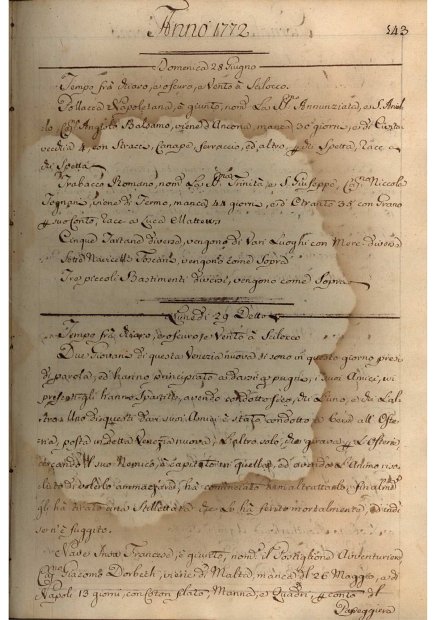 Anno 1772
543
Domenica 28 Giugno
Tempo frà chiaro, e oscuro, e Vento à Scilocco.
Pollacca Napoletana, è giunto, nom. La SS. Annunziata, e S. Anto
lo Cap. Angiolo Balsamo, viene d'Ancona, manca 30 giorni, e di Civita
vecchia 4, con Stracci, Canapa, ferraccio, ed altro, di Spetta, race a
di Spetta
Trabacco Romano, nom. La SS. Trinità e S. Giuseppe, Cap. Niccola
Tognani, viene di Fermo, manca 44 giorni, e d'Otranto 38, con Grano
suo Conto, race a Luca Matteuci
Cinque Tartane diverse, vengono di Vari Luoghi con Merci diverse
Sette Navicelli Toscani, vengono come Sopra
Tre piccoli Bastimenti diversi, vengono come Sopra
Lunedì 29 Detto
Tempo frà chiaro, e oscuro, e Vento à Scilocco
Due Giovani di questa Venezia nuova si sono in questo giorno pres
di parola, ed hanno principiato a darsi pugni, i suoi Amici, ivi
presenti gli hanno spartiti, avendo condotto seco, chi l'uno, e chi l'al
tro. Uno di questi da i suoi Amici è stato condotto à bere all' Oste
ria, posta in detta Venezia nuova; L'altro solo, che girava l'Osterie
cercando il suo Nemico, è capitato in quella, ed avendo l'Animo riso
luto di volerlo ammazzare, ha cominciato
gli ha tirato una Stillettata che Lo hà ferito mortalmente, ed indi
se n'è fuggito.
Nave Francese, è giunto, nom. Il Postiglione Avventuriere
Cap. Giacomo Dorbeth, viene di Malta, manca dl 26 Maggio, e di
Napoli 13 giorni, con Coton filato, Manna, e Quadri, conto dl
Passeggiere